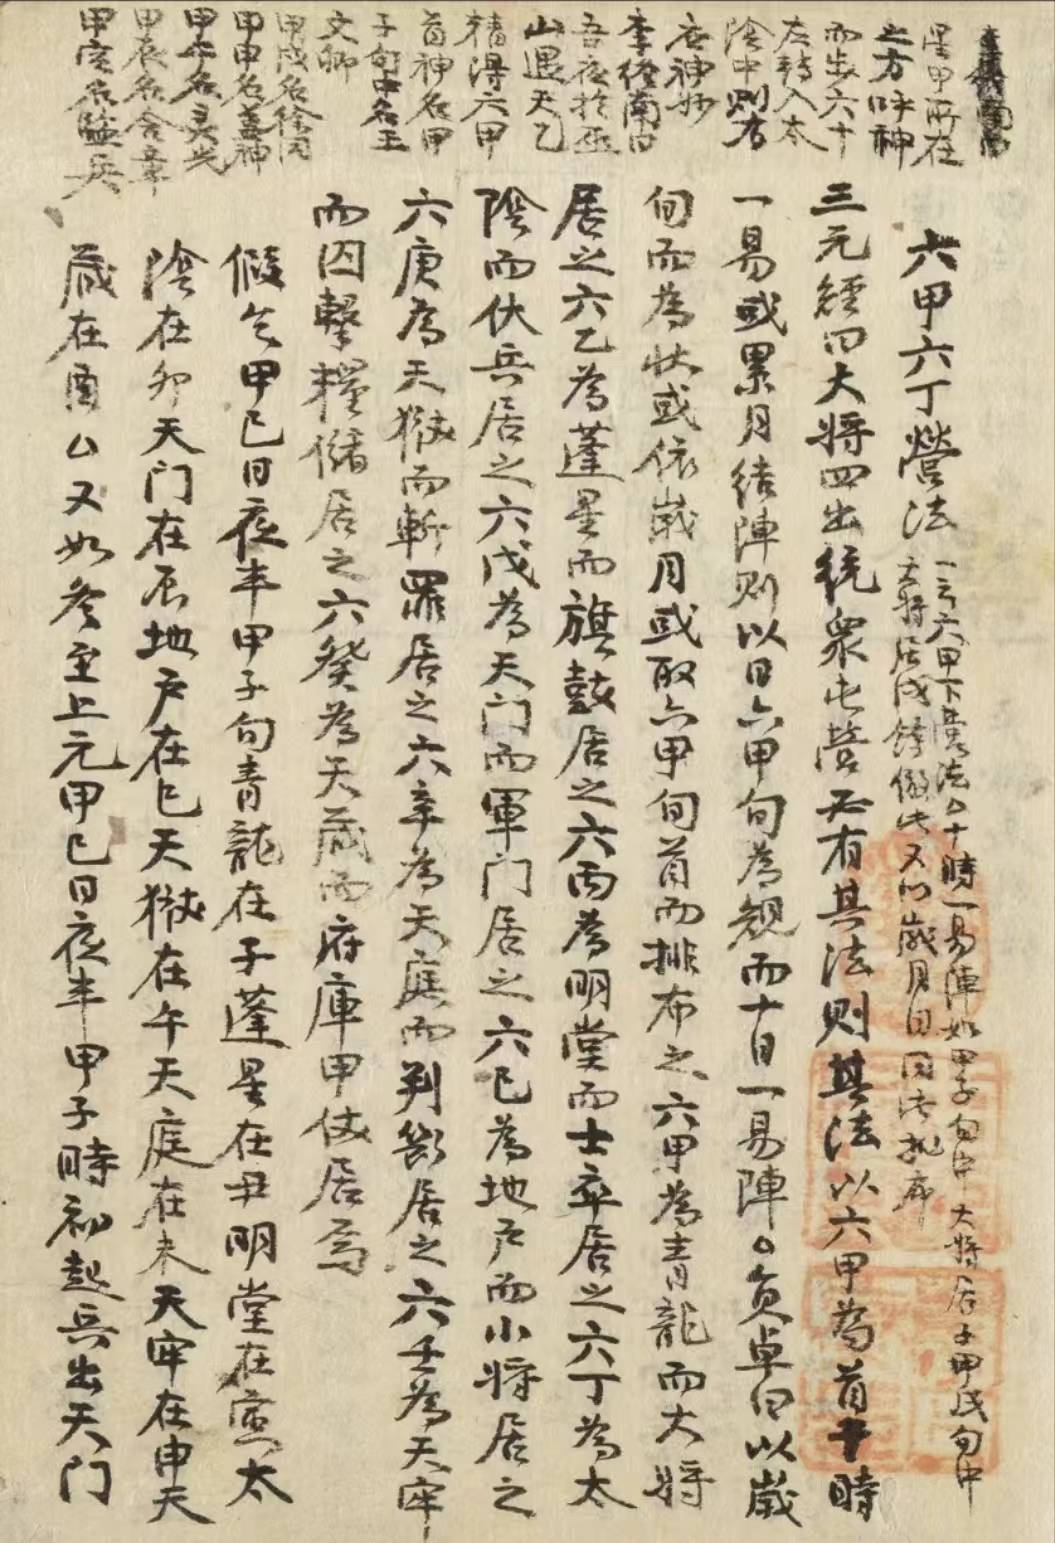 是甲所在
之方呼神
而步六十
左轉入太
陰中則存
李經南曰
吾夜於巫
山遇天乙
精得六甲
首神名甲
子旬中名王
文卿
甲戌名徐同
甲申名蓋神
甲午名灵光
甲辰名含章
甲寅名監兵
六甲六丁營法
一云六甲下營法。十時一易陣如甲子旬中大將居子甲戌旬中
大將居戌餘倣此又以歲月日同法排布
三元經曰大將四出統衆屯營不有其法則其法以六甲為首十時
一易或累月結陣則以日六甲旬為規而十日一易陣。負卓曰以歲
旬而為狀或依歲月或取六甲旬首而排布之六甲為青龍而大將
居之六乙為蓬星而旗鼓居之六丙為明堂而士卒居之六丁為太
陰而伏兵居之六戊為天门而軍门居之六己為地户而小將居之
六庚為天獄而斬罪居之六辛為天庭而判斷居之六壬為天牢
而囚擊糧儲居之六癸為天藏而府庫甲仗居焉
假令甲己日夜半甲子旬青龍在子蓬星在丑明堂在寅太
陰在卯天门在辰地户在巳天獄在午天庭在未天牢在申天
藏在酉。又如冬至上元甲己日夜半甲子時初起兵出天门